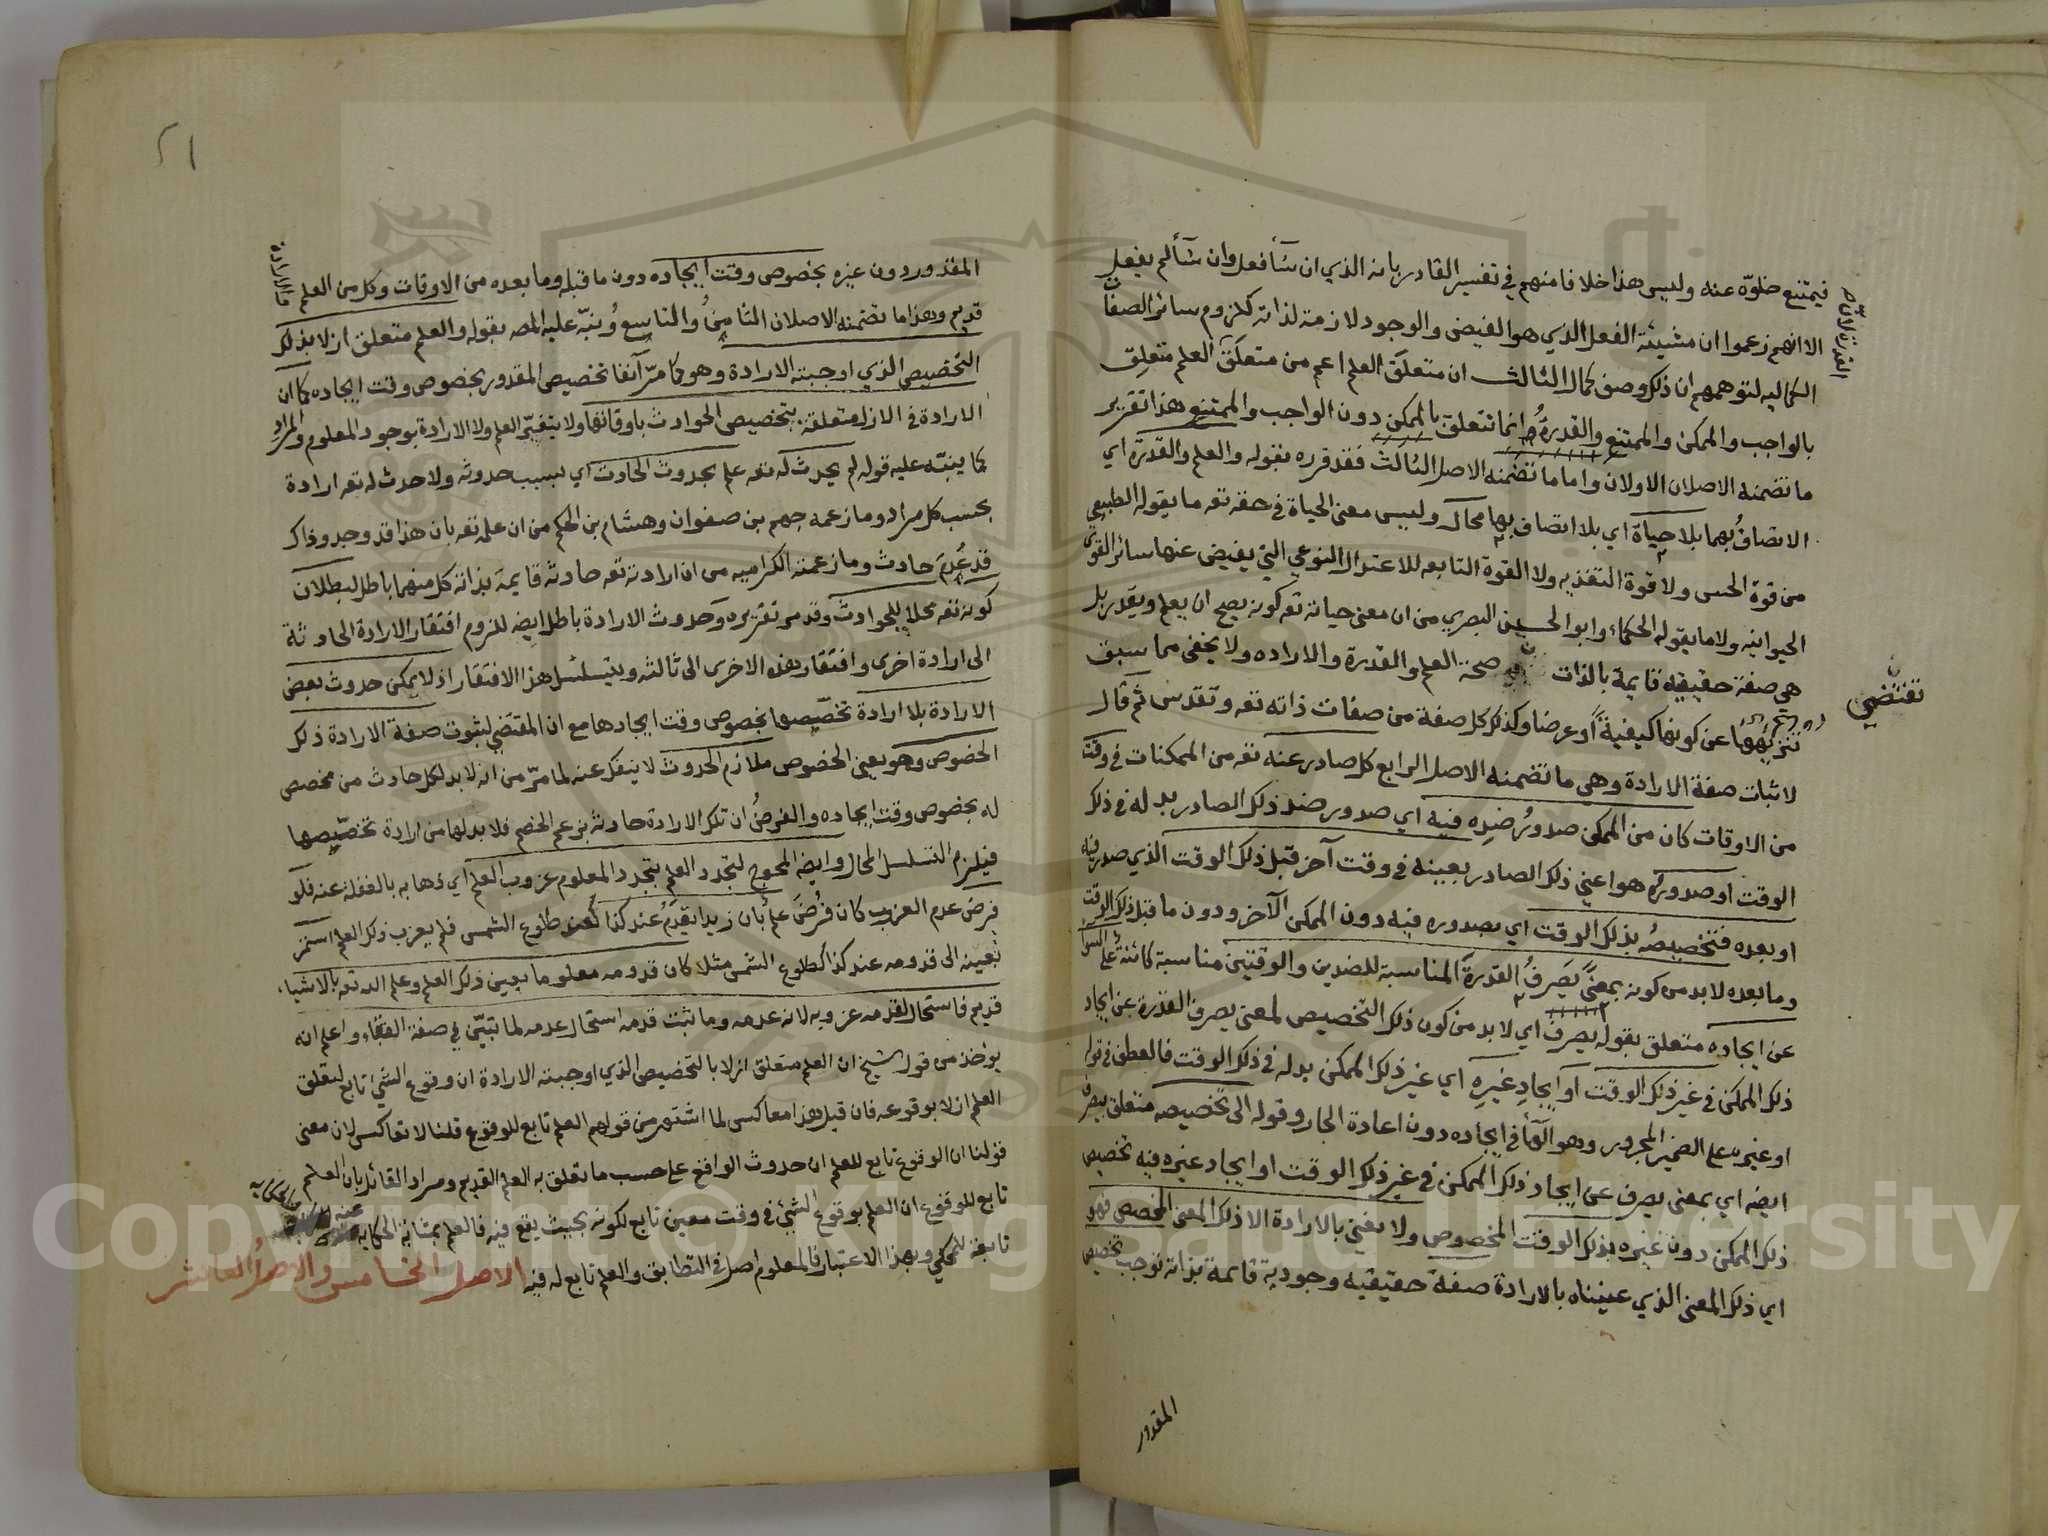 فيمتنع خلوّه عنه وليس هذا خلافا منهم في تفسير القادر بانه الذي ان شأ فعل وان شألم يفعل
الا انهم زعموا ان مشيئة الفعل الذي هو الفيض والوجود لازمة لذاته كلزوم سائر الصفات
الكماليه لتوهمهم ان ذلك وصف كمال الثالث ان متعلق العلم اعم من متعلق العلم متعلق
بالواجب والممكن والممتنع والقدرةُ انما تتعلق بالممكن دون الواجب والممتنع هذا تقرير
ما تضمنه الاصلان الاولان واما ما تضمنه الاصل الثالث فقد قرره بقوله والعلم والقدرة اي
الاتصافُ بهما بلا حياة اي بلا اتصاف بها محال وليس معنى الحياة في حقه تعه ما يقوله الطبيعي
من قوة الحس ولا قوة التغذيه ولا القوة التابعه للاعتدال النوعي التي يفيض عنها سائر القوى
الحيوانيه ولا ما يقوله الحكماء وابو الحسين البصري من ان معنى حياته تعه كونه يصح ان يعلم ويقدر بل
هي صفة حقيقيه قايمة بالذات صحة العلم والقدرة والاراده ولا يخفى مما سبق
تقتضي
تنزيهها عن كونها كيفية او عرضا وكذلك كل صفة من صفات ذاته تعه وتقدس ثم قال
لاثبات صفة الارادة وهي ما تضمنه الاصل الرابع كل صادر عنه تعه من الممكنات في وقت
من الاوقات كان من الممكن صدورُ ضده فيه اي صدور ضد ذلك الصادر بدله في ذلك
الوقت او صدوره هو اعني ذلك الصادر بعينه في وقت آخر قبل ذلك الوقت الذي صدر فيه
او بعده فتخصيصُه بذلك الوقت اي بصدوره فيه دون الممكن الآخر ودون ما قبل ذلك الوقت
وما بعده لا بد من كونه بمعنًى يَصرفُ القدرةَ المناسبة للضدين والوقتين مناسبة كائنة على السوآ
عن ايجاده متعلق بقوله يصرف اي لا بد من كون ذلك التخصيص لمعنى يصرف القدرة عن ايجاد
ذلك الممكن في غير ذلك الوقت او ايجادِ غيرِه اي غير ذلك الممكن بدله في ذلك الوقت فالعطف في قوله
او غيره على الضمير المجرور وهو الهآ في ايجاده دون اعادة الجار وقوله الى تخصيصه متعلق بيصرف
ايضه اي بمعنى يصرف عن ايجاد ذلك الممكن في غير ذلك الوقت او ايجاد غيره فيه تخصيص
ذلك الممكن دون غيره بذلك الوقت المخصوص ولا نعني بالارادة الا ذلك المعنى المخصص فهو
اي ذلك المعنى الذي عنيناه بالارادة صفة حقيقيه وجودية قائمة بذاته توجب تخصيص
المقدور
٢١
المقدور دون غيره بخصوص وقت ايجاده دون ما قبله وما بعده من الاوقات وكل من العلم
والارادة
قديم وهذا ما تضمنه الاصلان الثامنُ والتاسعُ ونبّه عليه المصه بقوله والعلم متعلق ازلا بذلك
التخصيص الذي اوجبته الارادة وهو كما مرّ آنفا تخصيص المقدور بخصوص وقت ايجاده كما ان
الارادة في الازل متعلقة بتخصيص الحوادث باوقاتها ولا يتغيّر العلم ولا الارادة بوجود المعلوم والمراد
كما ينبّه عليه قوله لم يحدث له تعه علم بحدوث الحادث اي بسبب حدوثه ولا حدث له تعه ارادة
بحسب كل مراد وما زعمه جهم بن صفوان وهشام بن الحكم من ان علمه تعه بان هذا قد وجد وذاك
قد عُدِمَ حادث وما زعمته الكراميه من ان ارادته تعه حادثه قايمة بذاته كل منهما باطل لبطلان
كونه تعه محلا للحوادث وقد مر تقريره وحدوث الارادة باطل ايضه للزوم افتقار الارادة الحادثة
الى ارادة اخرى وافتقار هذه الاخرى الى ثالثه ويتسلسل هذا الافتقار اذ لا يمكن حدوث بعض
الارادة بلا ارادة تخصّصها بخصوص وقت ايجادها مع ان المقتضي لثبوت صفة الارادة ذلك
الخصوص وهو يعني الخصوص ملازم الحدوث لا ينفك عنه لما مرّ من انه لا بد لكل حادث من مخصص
له بخصوص وقت ايجاده والفرضُ ان تلك الارادة حادثة بزعم الخصم فلا بد لها من ارادة تخصّصها
فيلزم التسلسل المحال وايضه المحوج لتجدد العلم بتجدد المعلوم عزوب العلم اي ذهابه بالغفلة عنه فلو
فرض عدم العزوب كان فُرِضَ علمٌ بان زيدا يقدمُ عند كذا كعند طلوع الشمس فلم يعزب ذلك العلم استمر
بعينه الى قدومه عند كذا كطلوع الشمس مثلا كان قدومه معلوما بعين ذلك العلم وعلم الله تعه بالاشياء
قديم فاستحال لقدمه عزوبه لانه عدمه وما ثبت قدمه استحال عدمه لما تبيّن في صفة البقاء واعلم انه
يؤخذ من قول الشيخ ان العلم متعلق ازلا بالتخصيص الذي اوجبته الارادة ان وقوع الشيئ تابع لتعلق
العلم ازلا بوقوعه فان قيل هذا معاكس لما اشتهر من قولهم العلم تابع للوقوع قلنا لا تعاكس لان معنى
قولنا ان الوقوع تابع للعلم ان حدوث الواقع على حسب ما تعلق به العلم القديم ومراد القائل بان العلم
تابع للوقوع ان العلم بوقوع الشيئ في وقت معين تابع لكونه بحيث يقع فيه فالعلم بمثابة الحكاية عنه والحكاية
تابعة للمحكي وبهذا الاعتبار فالمعلوم اصل في التطابق والعلم تابع له فيه الاصل الخامس والاصلُ العاشر
Copyright © King Saud University